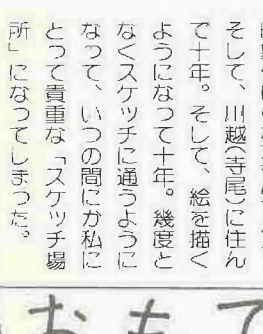 そして、川越(寺尾)に住ん
で十年。そして、絵を描く
ようになって十年。幾度と
なくスケッチに通うように
なって、いつの間にか私に
とって貴重な「スケッチ場
所」になってしまった。
おもて